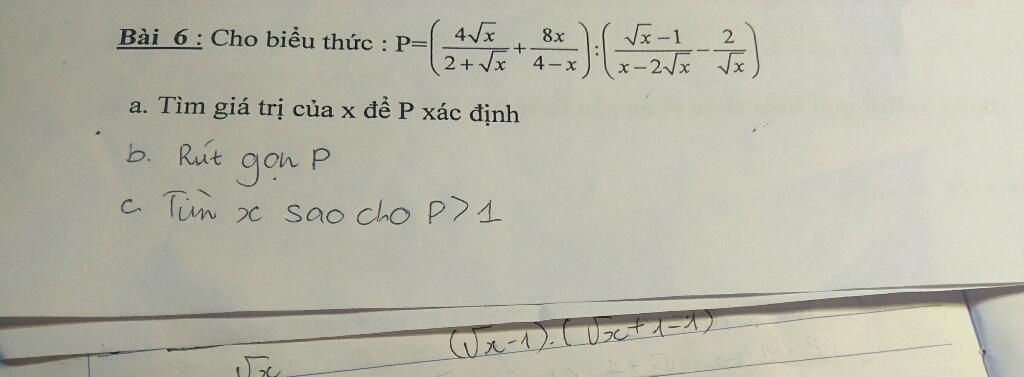 Bài 6 : Cho biểu thức : P=(4√x/(2+√x) + 8x/(4−x)) : ((√x−1)/(x−2√x) − 2/√x)
a. Tìm giá trị của x để P xác định
b. Rút gọn P
c. Tìm x sao cho P>1
(√x-1).(√x+1-1)
√x